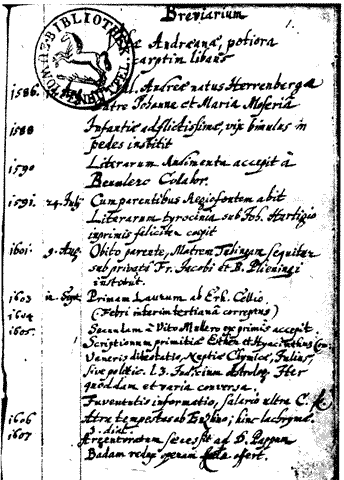 Breviarium
1.
Andreanæ, potiora
carptim libans
1586. Andreæ natus Herrenbergæ
patre Johanne et Maria Moseria
1588 Infantiæ adflictissimæ, vix bimulus in
pedes institit
1590 Literarum Rudimenta accepit à
Beumlero Colabor.
1591. 24. July Cum parentibus Regiofontem abit
Literarum tyrocinia sub Joh. Hartigio
inprimis feliciter coepit
1601. 9. Aug. Obito parente, Matrem Tubingam sequitur
sub privata Fr. Jacobi et B. Plieningi
institut.
1603 in Sept. Primam Lauream ab Erh. Cellio
1604 (Febri interim tertiana correptus)
1605. Secundam à Vito Mulero ex primis accepit
Scriptionum primitiæ Esther et Hyacinthus Com
Veneris detestatio, Nuptiæ Chymicæ, Julius,
sive politic. l. 3. Judicium Astrolog. Iter
quoddam et varia conversa.
Juventutis informatio, salario ultra C.
1606 Atra tempestas ab ; hinc lachrymæ.
1607 Argentoratum secessit ad B. Pappum
Badam redux operam offert.